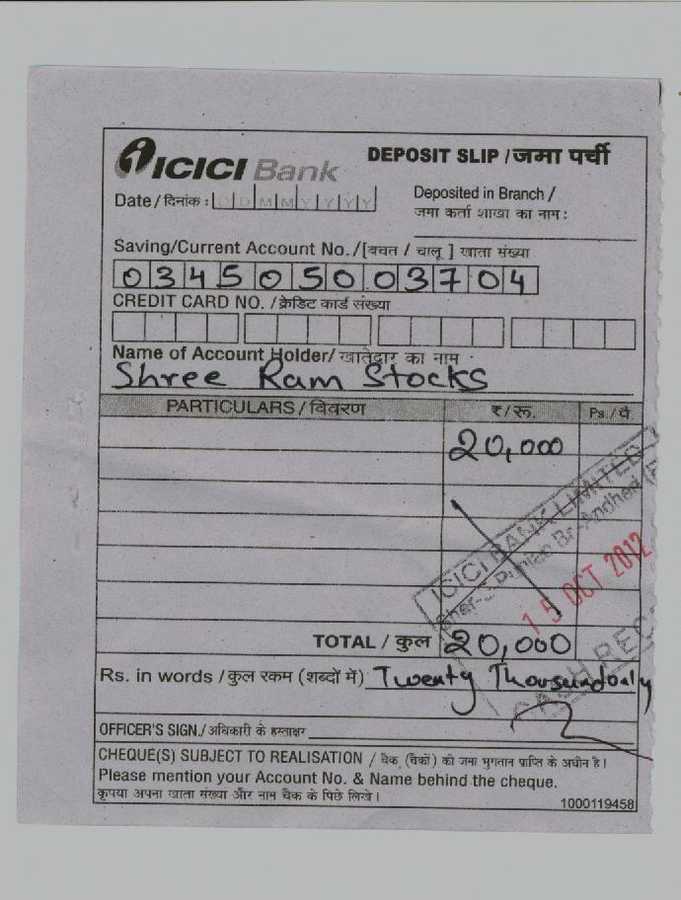 ICICI Bank
DEPOSIT SLIP / जमा पर्ची
Date / दिनांक : D D M M Y Y Y Y
Deposited in Branch /
जमा कर्ता शाखा का नाम :
Saving/Current Account No. /[बचत / चालू ] खाता संख्या
034505003704
CREDIT CARD NO. / क्रेडिट कार्ड संख्या
Name of Account Holder/ खातेदार का नाम
Shree Ram Stocks
PARTICULARS / विवरण ₹/रू. Ps./पै.
20,000
ICICI BANK LIMITED
Sher-E-Punjab Br. Andheri (E
15 OCT 2012
TOTAL / कुल 20,000
CASH REC
Rs. in words / कुल रकम (शब्दों में) Twenty Thousand only
OFFICER'S SIGN./ अधिकारी के हस्ताक्षर
CHEQUE(S) SUBJECT TO REALISATION / चैक, (चैकों) की जमा भुगतान प्राप्ति के अधीन है।
Please mention your Account No. & Name behind the cheque.
कृपया अपना खाता संख्या और नाम चैक के पिछे लिखे।
1000119458